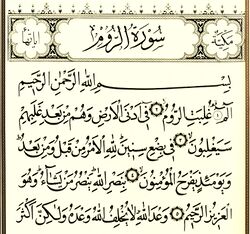 مكية سورة الروم آياتها
بِسْمِ اللَّهِ الرَّحْمَٰنِ الرَّحِيمِ
الٓمٓ ۝١ غُلِبَتِ الرُّومُ ۝٢ فِي أَدْنَى الْأَرْضِ وَهُمْ مِنْ بَعْدِ غَلَبِهِمْ
سَيَغْلِبُونَ ۝٣ فِي بِضْعِ سِنِينَ لِلَّهِ الْأَمْرُ مِنْ قَبْلُ وَمِنْ بَعْدُ
وَيَوْمَئِذٍ يَفْرَحُ الْمُؤْمِنُونَ ۝٤ بِنَصْرِ اللَّهِ يَنْصُرُ مَنْ يَشَاءُ وَهُوَ
الْعَزِيزُ الرَّحِيمُ ۝٥ وَعْدَ اللَّهِ لَا يُخْلِفُ اللَّهُ وَعْدَهُ وَلَٰكِنَّ أَكْثَرَ